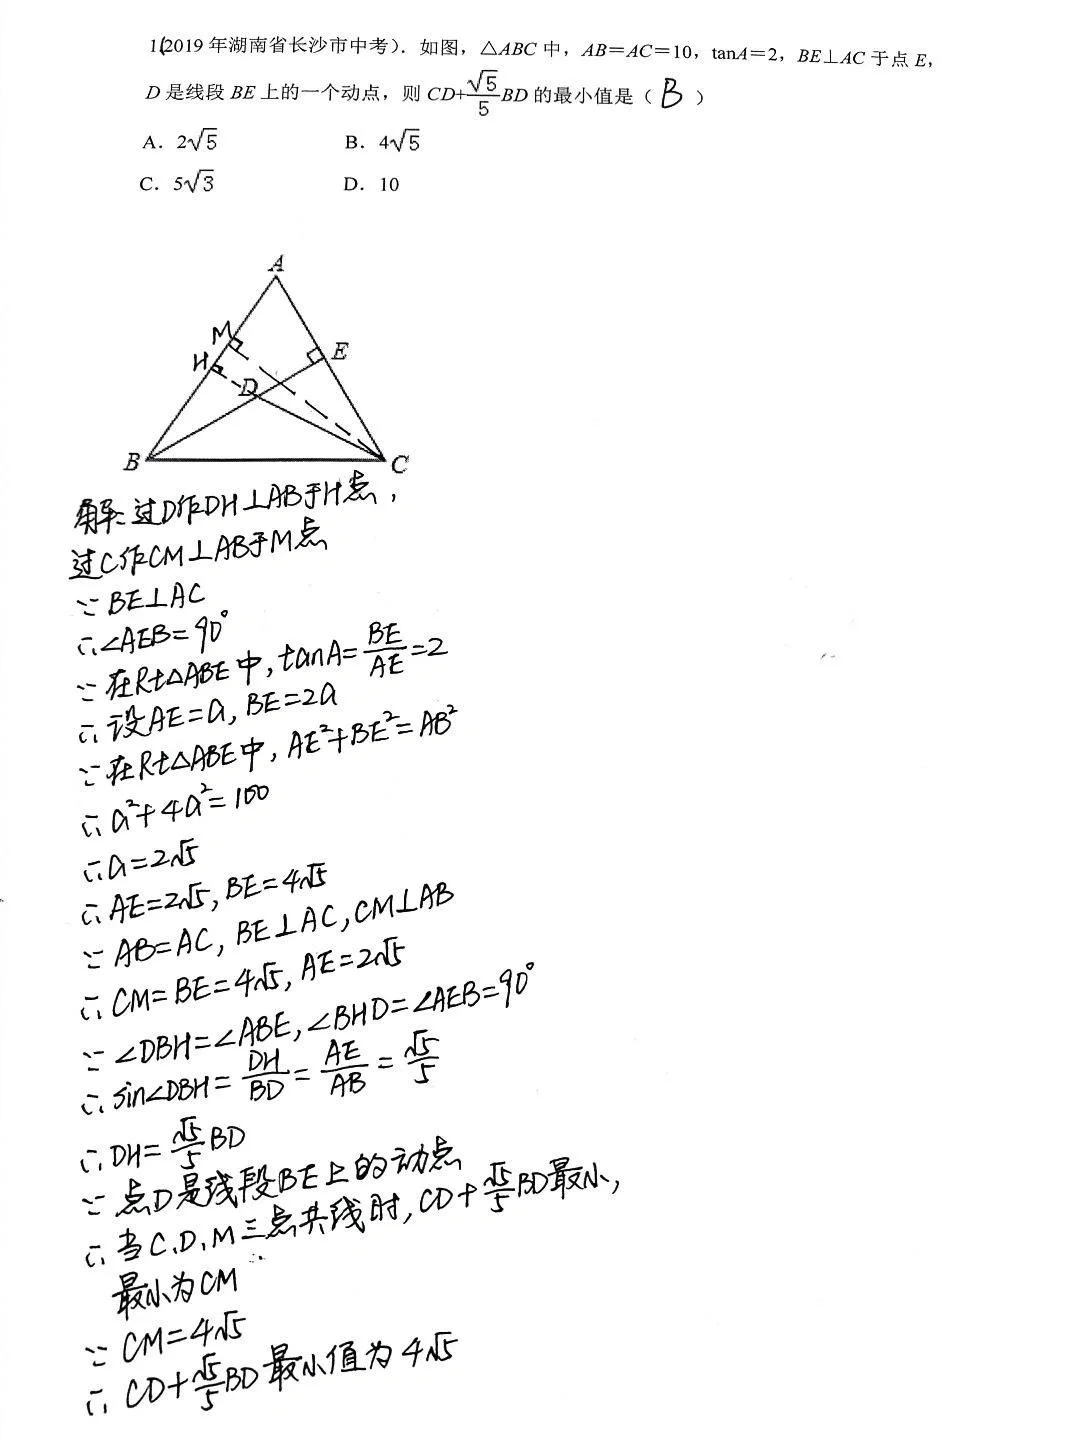 1(2019年湖南省长沙市中考）. 如图，△ABC中，AB＝AC＝10，tanA＝2，BE⊥AC于点E，
D是线段BE上的一个动点，则CD+√5/5BD的最小值是（ B ）
A．2√5 B．4√5
C．5√3 D．10
A
M
H
E
D
B
C
解: 过D作DH⊥AB于H点,
过C作CM⊥AB于M点
∵ BE⊥AC
∴∠AEB=90°
∵ 在Rt△ABE中, tanA=BE/AE=2
∴ 设AE=a, BE=2a
∵ 在Rt△ABE中, AE²+BE²=AB²
∴ a²+4a²=100
∴a=2√5
∴ AE=2√5, BE=4√5
∵ AB=AC, BE⊥AC, CM⊥AB
∴ CM=BE=4√5, AE=2√5
∵ ∠DBH=∠ABE, ∠BHD=∠AEB=90°
∴ sin∠DBH=DH/BD=AE/AB=√5/5
∴ DH=√5/5BD
∵ 点D是线段BE上的动点
∴ 当C、D、M三点共线时, CD+√5/5BD最小,
最小为CM
∵ CM=4√5
∴ CD+√5/5BD最小值为4√5